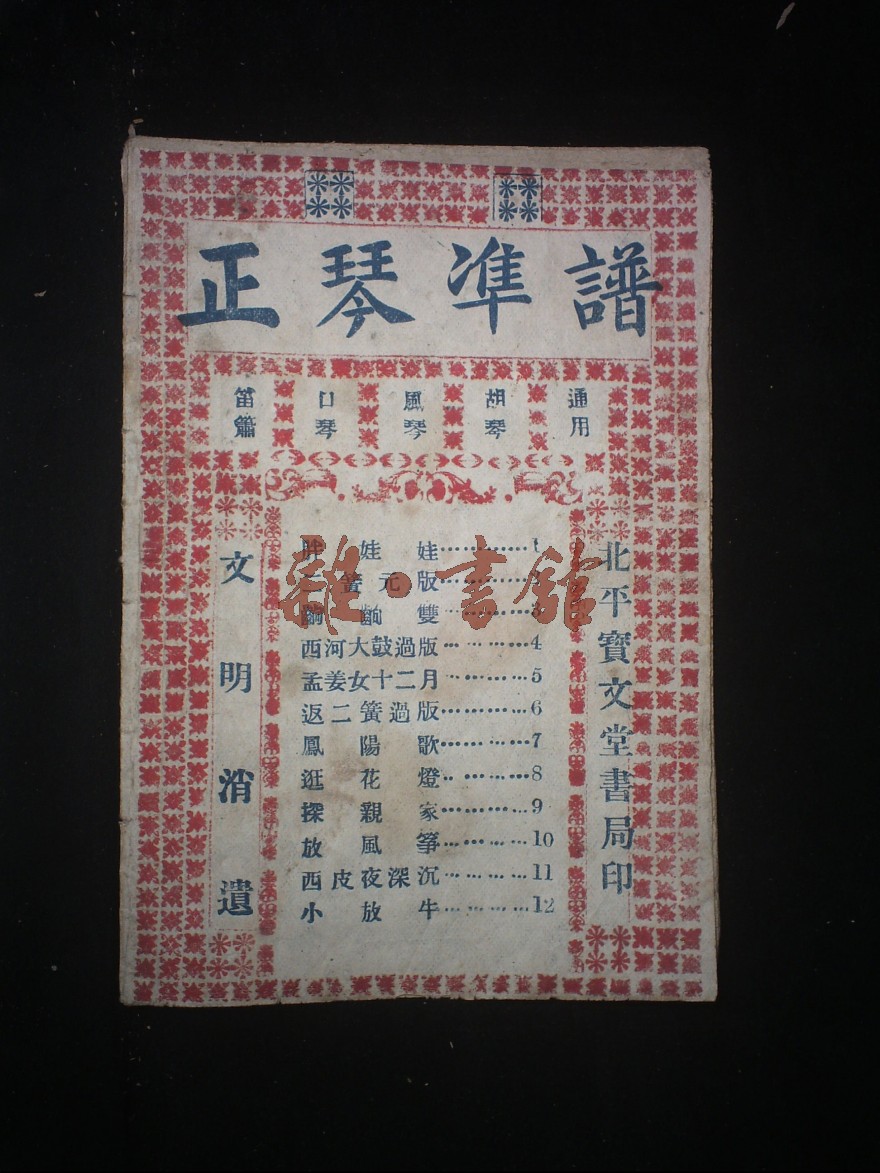 正琴凖譜
笛簫 口琴 風琴 胡琴 通用
胖娃娃…………1
簧元版…………2
雙…………3
西河大鼓過版…………4
孟姜女十二月…………5
返二簧過版…………6
鳳陽歌…………7
逛花燈…………8
探親家…………9
放風箏…………10
西皮夜深沉…………11
小放牛…………12
文明消遺
北平寶文堂書局印
雜·書館